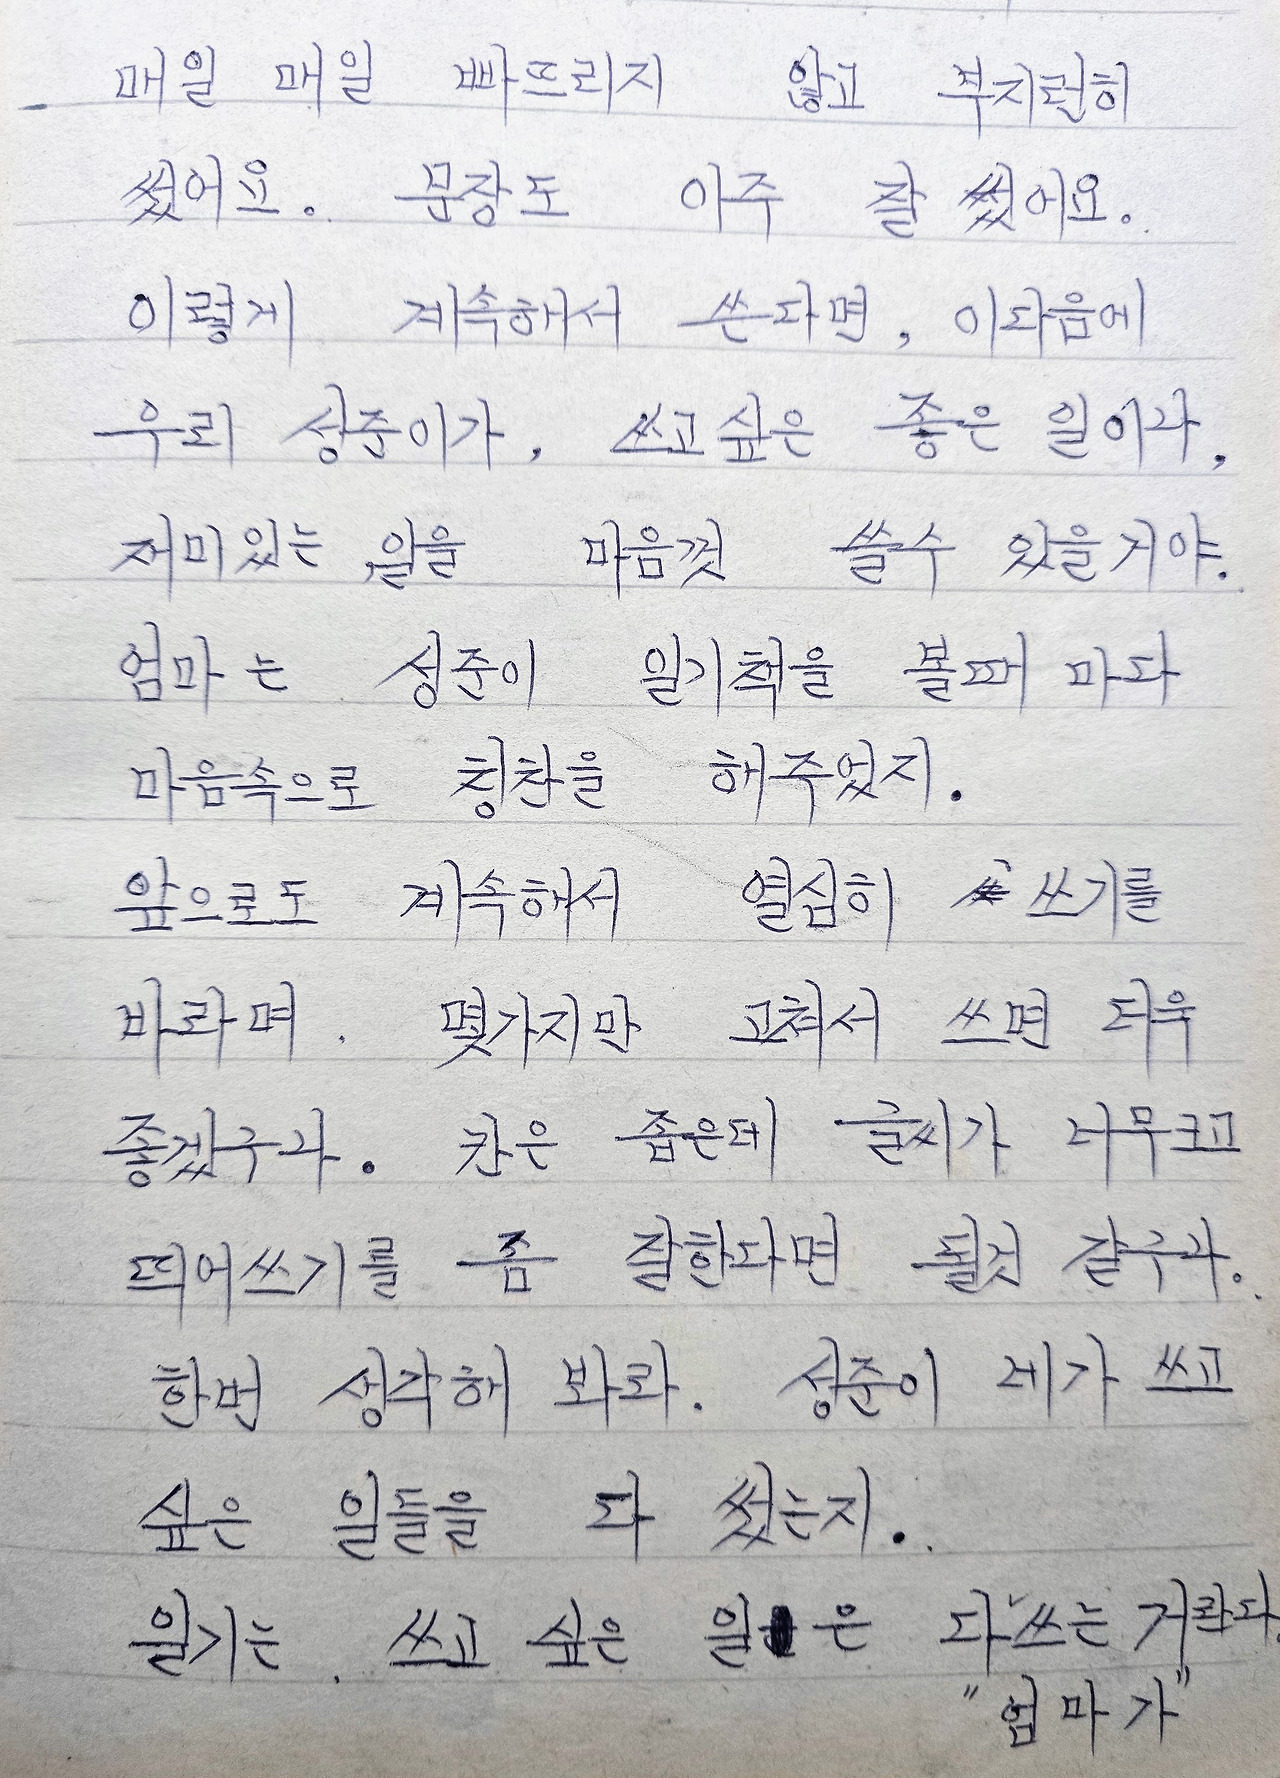 매일 매일 빠뜨리지 않고 부지런히
썼어요. 문장도 아주 잘 썼어요.
이렇게 계속해서 쓴다면, 이다음에
우리 성준이가, 쓰고싶은 좋은 일이나,
재미있는 일을 마음껏 쓸수 있을거야.
엄마는 성준이 일기책을 볼때 마다
마음속으로 칭찬을 해주었지.
앞으로도 계속해서 열심히 쓰기를
바라며. 몇가지만 고쳐서 쓰면 더욱
좋겠구나. 칸은 좁은데 글씨가 너무크고
띄어쓰기를 좀 잘한다면 될것 같구나.
한번 생각해 봐라. 성준이 네가 쓰고
싶은 일들을 다 썼는지.
일기는 쓰고 싶은 일은 다 쓰는 거란다.
"엄마가"